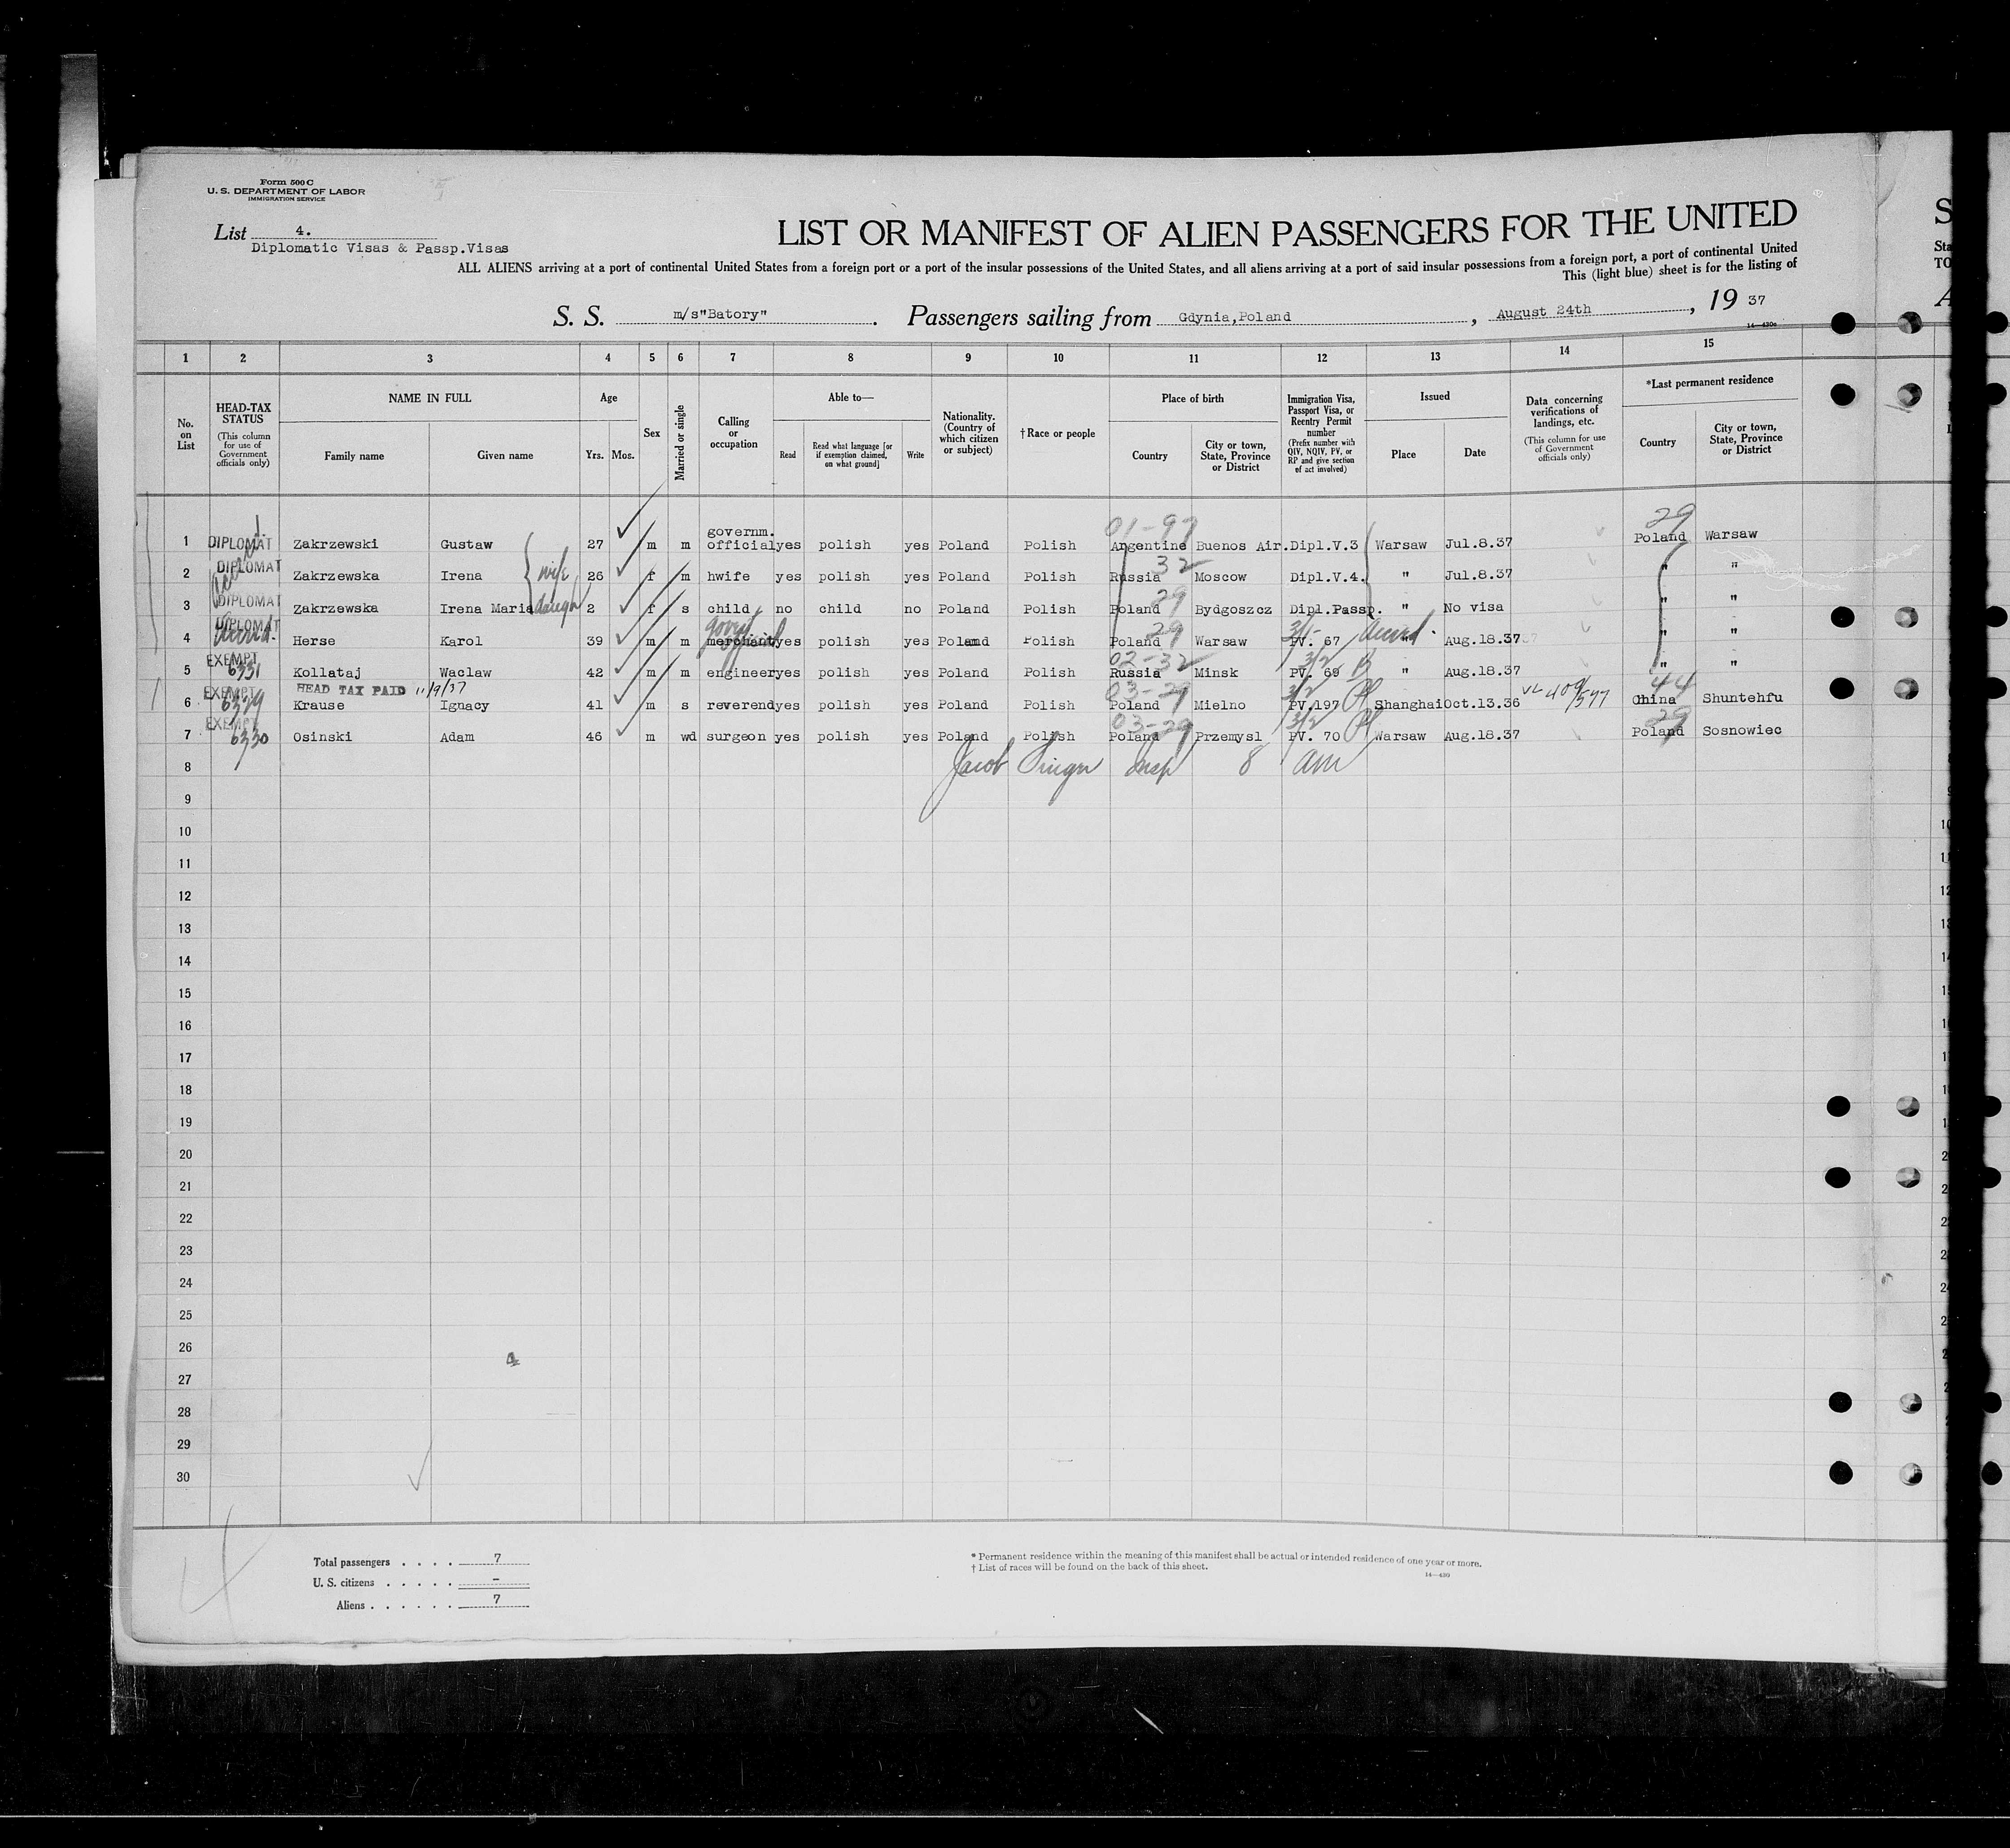 Form 500 C
U. S. DEPARTMENT OF LABOR
IMMIGRATION SERVICE
List 4.
Diplomatic Visas & Passp.Visas
LIST OR MANIFEST OF ALIEN PASSENGERS FOR THE UNITED
ALL ALIENS arriving at a port of continental United States from a foreign port or a port of the insular possessions of the United States, and all aliens arriving at a port of said insular possessions from a foreign port, a port of continental United
This (light blue) sheet is for the listing of
S. S. m/s"Batory". Passengers sailing from Gdynia,Poland, August 24th, 19 37
14—430c
1 2 3 4 5 6 7 8 9 10 11 12 13 14 15
No. on List
HEAD-TAX STATUS (This column for use of Government officials only)
NAME IN FULL Family name Given name
Age Yrs. Mos.
Sex
Married or single
Calling or occupation
Able to— Read Read what language [or if exemption claimed, on what ground] Write
Nationality. (Country of which citizen or subject)
†Race or people
Place of birth Country City or town, State, Province or District
Immigration Visa, Passport Visa, or Reentry Permit number (Prefix number with QIV, NQIV, PV, or RP and give section of act involved)
Issued Place Date
Data concerning verifications of landings, etc. (This column for use of Government officials only)
*Last permanent residence Country City or town, State, Province or District
01-97 29
1 DIPLOMAT Zakrzewski Gustaw 27 m m governm. official yes polish yes Poland Polish Argentine Buenos Air. Dipl.V.3 Warsaw Jul.8.37 Poland Warsaw
32
2 DIPLOMAT Zakrzewska Irena wife 26 f m hwife yes polish yes Poland Polish Russia Moscow Dipl.V.4. " Jul.8.37 " "
29
3 DIPLOMAT Zakrzewska Irena Maria daugh 2 f s child no child no Poland Polish Poland Bydgoszcz Dipl.Passp. " No visa " "
govt 29 3/1-
4 DIPLOMAT Herse Karol 39 m m merchant yes polish yes Poland Polish Poland Warsaw PV. 67 " Aug.18.37 " "
02-32 3/2
5 EXEMPT 6331 Kollataj Waclaw 42 m m engineer yes polish yes Poland Polish Russia Minsk PV. 69 " Aug.18.37 " "
HEAD TAX PAID 11/9/37 03-29 3/2 44
6 EXEMPT 6329 Krause Ignacy 41 m s reverend yes polish yes Poland Polish Poland Mielno PV.197 Shanghai Oct.13.36 China Shuntehfu
03-29 3/2 29
7 EXEMPT 6330 Osinski Adam 46 m wd surgeon yes polish yes Poland Polish Poland Przemysl PV. 70 Warsaw Aug.18.37 Poland Sosnowiec
8 Jacob Singer Insp 8 am
9
10
11
12
13
14
15
16
17
18
19
20
21
22
23
24
25
26
4
27
28
29
30
4
Total passengers . . . . 7
U. S. citizens . . . . . -
Aliens . . . . . . 7
* Permanent residence within the meaning of this manifest shall be actual or intended residence of one year or more.
† List of races will be found on the back of this sheet.
14—430